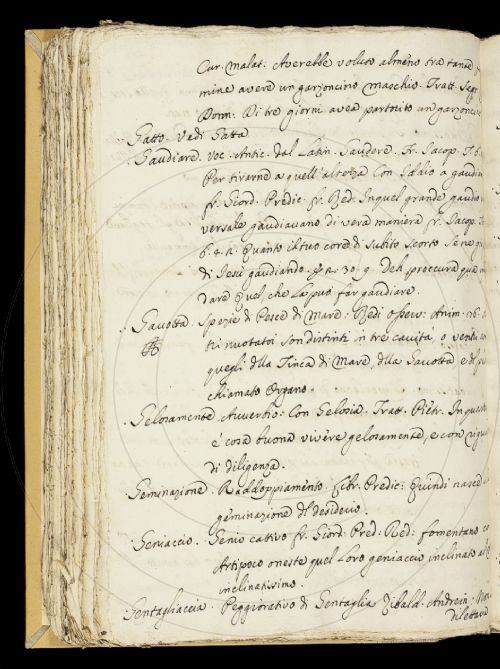 Cur. malat. Averebbe voluto almeno tra tante
mine avere un garzoncino maschio. Tratt. Segr.
Donn. Di tre giorni avea partorito un garzoncino
Gatto. Vedi Gatta
Gaudiare. Voc. Antic. dal Latin. Gaudere. Fr. Iacop. T. 6.
Per tirarne a quell'altezza Con Iddio a gaudiare
fr. Giord. Predic. fr. Red. In quel grande gaudio
versale gaudiavano di vera maniera fr. Iacop. T.
6. 4. 12. Quanto il tuo core di subito scorto Se ne
di Iesù gaudiando. 30. 9. Deh proccura
dare Quel, che la può far gaudiare.
Gavotta. Spezie di Pesce di Mare. Redi osserv. Anim. 176.
tri nuotatoi son distinti in tre cavità, o ventri
quegli della Tinca di Mare, della Gavotta e del
chiamato Organo.
Gelosamente. Avverbio. Con Gelosia. Tratt. Pietr. In questo
è cosa buona vivere gelosamente, e con
di diligenza.
Geminazione. Raddoppiamento. Libr. Predic. Quindi nasce
geminazione del desiderio.
Geniaccio. Genio cattivo fr. Giord. Pred. Red. fomentano
Artipoco oneste quel loro geniaccio inclinato al
inclinatissimo.
Gentagliaccia. Peggiorativo di Gentaglia Zibald. Andrein.
dilettava